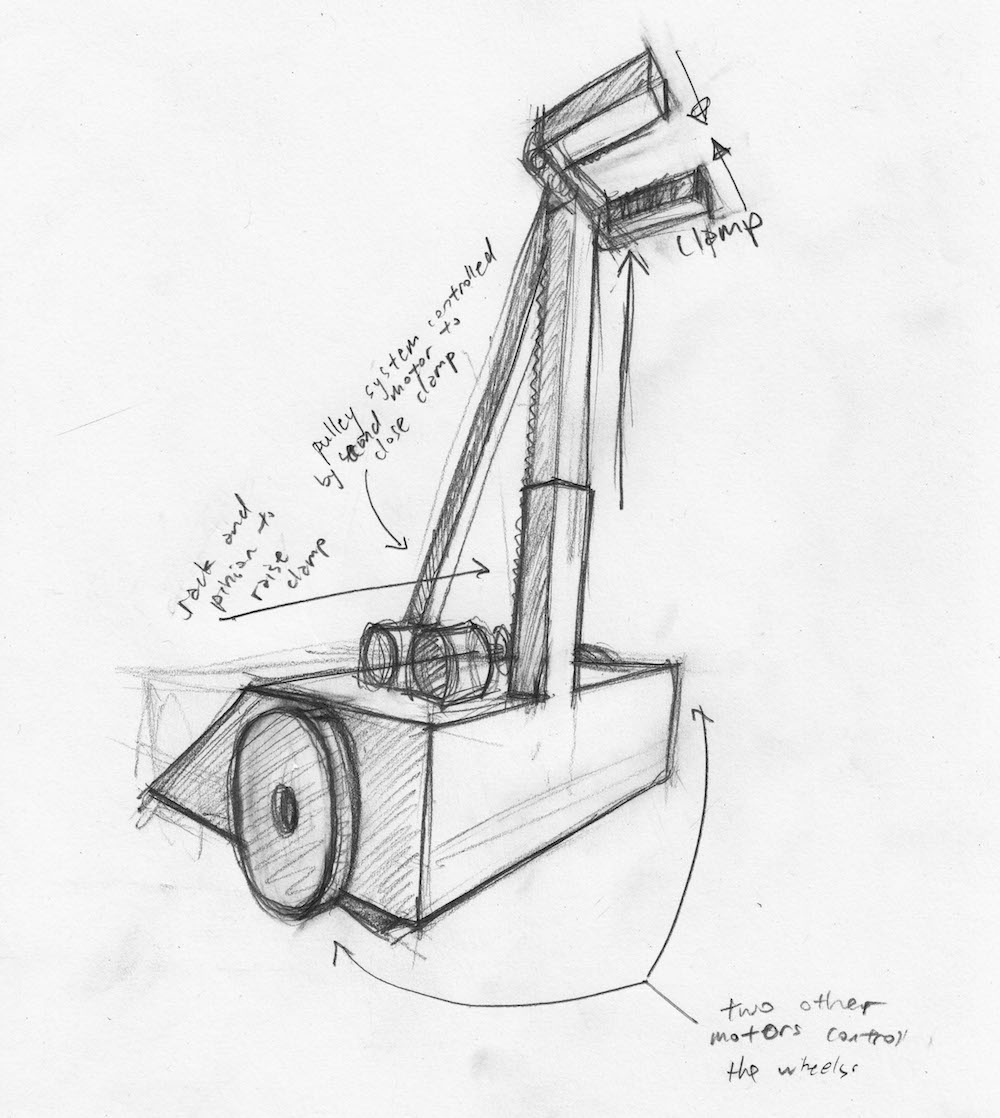 clamp
pulley system controlled
by second motor to
close clamp
rack and
pinian to
raise
clamp
two other
motors control
the wheels.